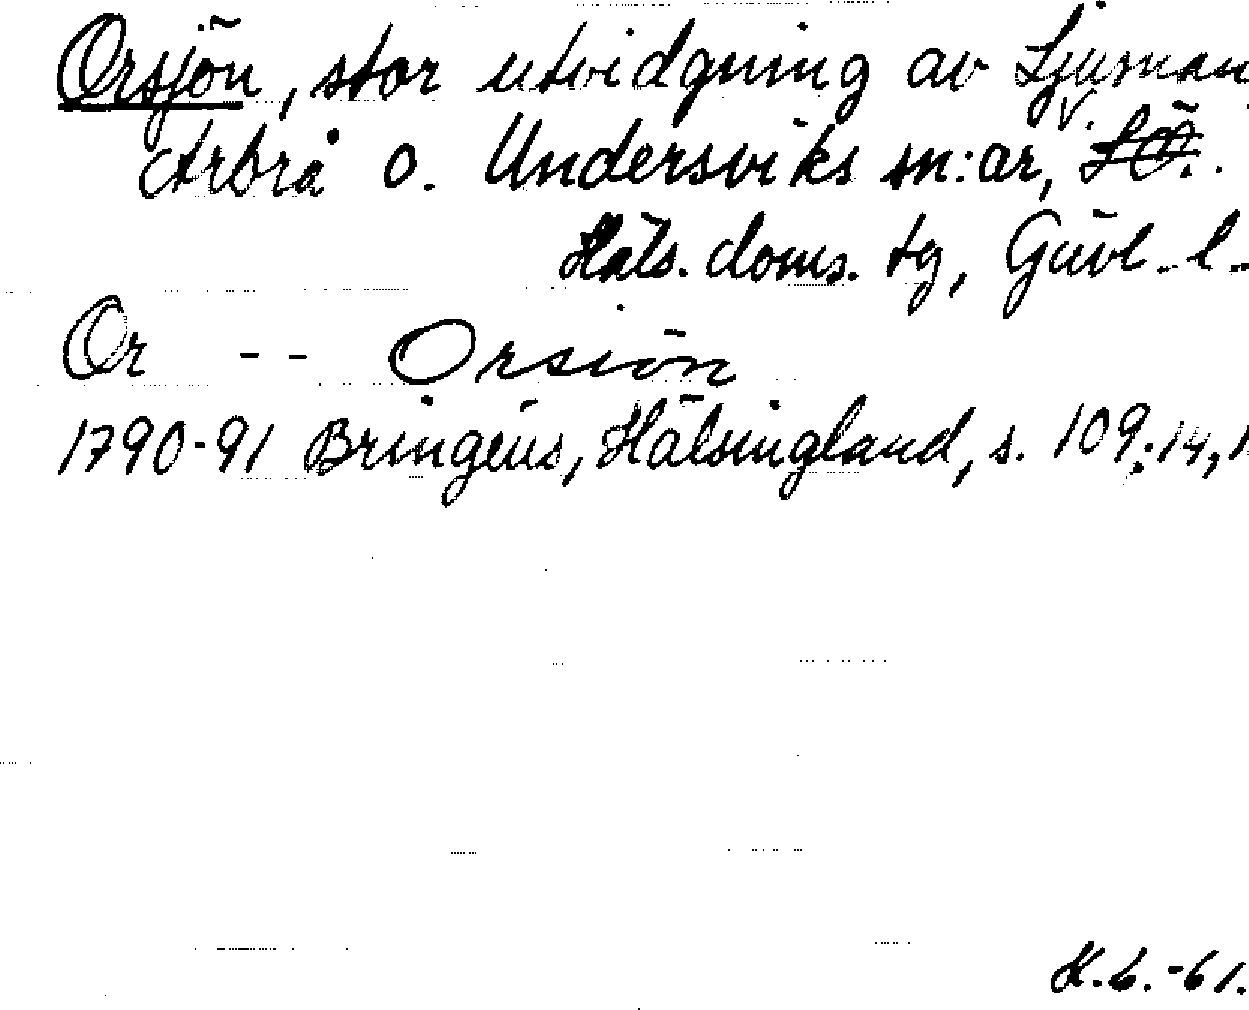 Orsjön, stor utvidgning av Ljusnan
Arbrå o. Undersviks sn:ar, V.
Häls. doms. tg, Gävl. l.
Or -- Orsiön
1790-91 Bringéus, Hälsingland, s. 109:14,1
K.L.-61.